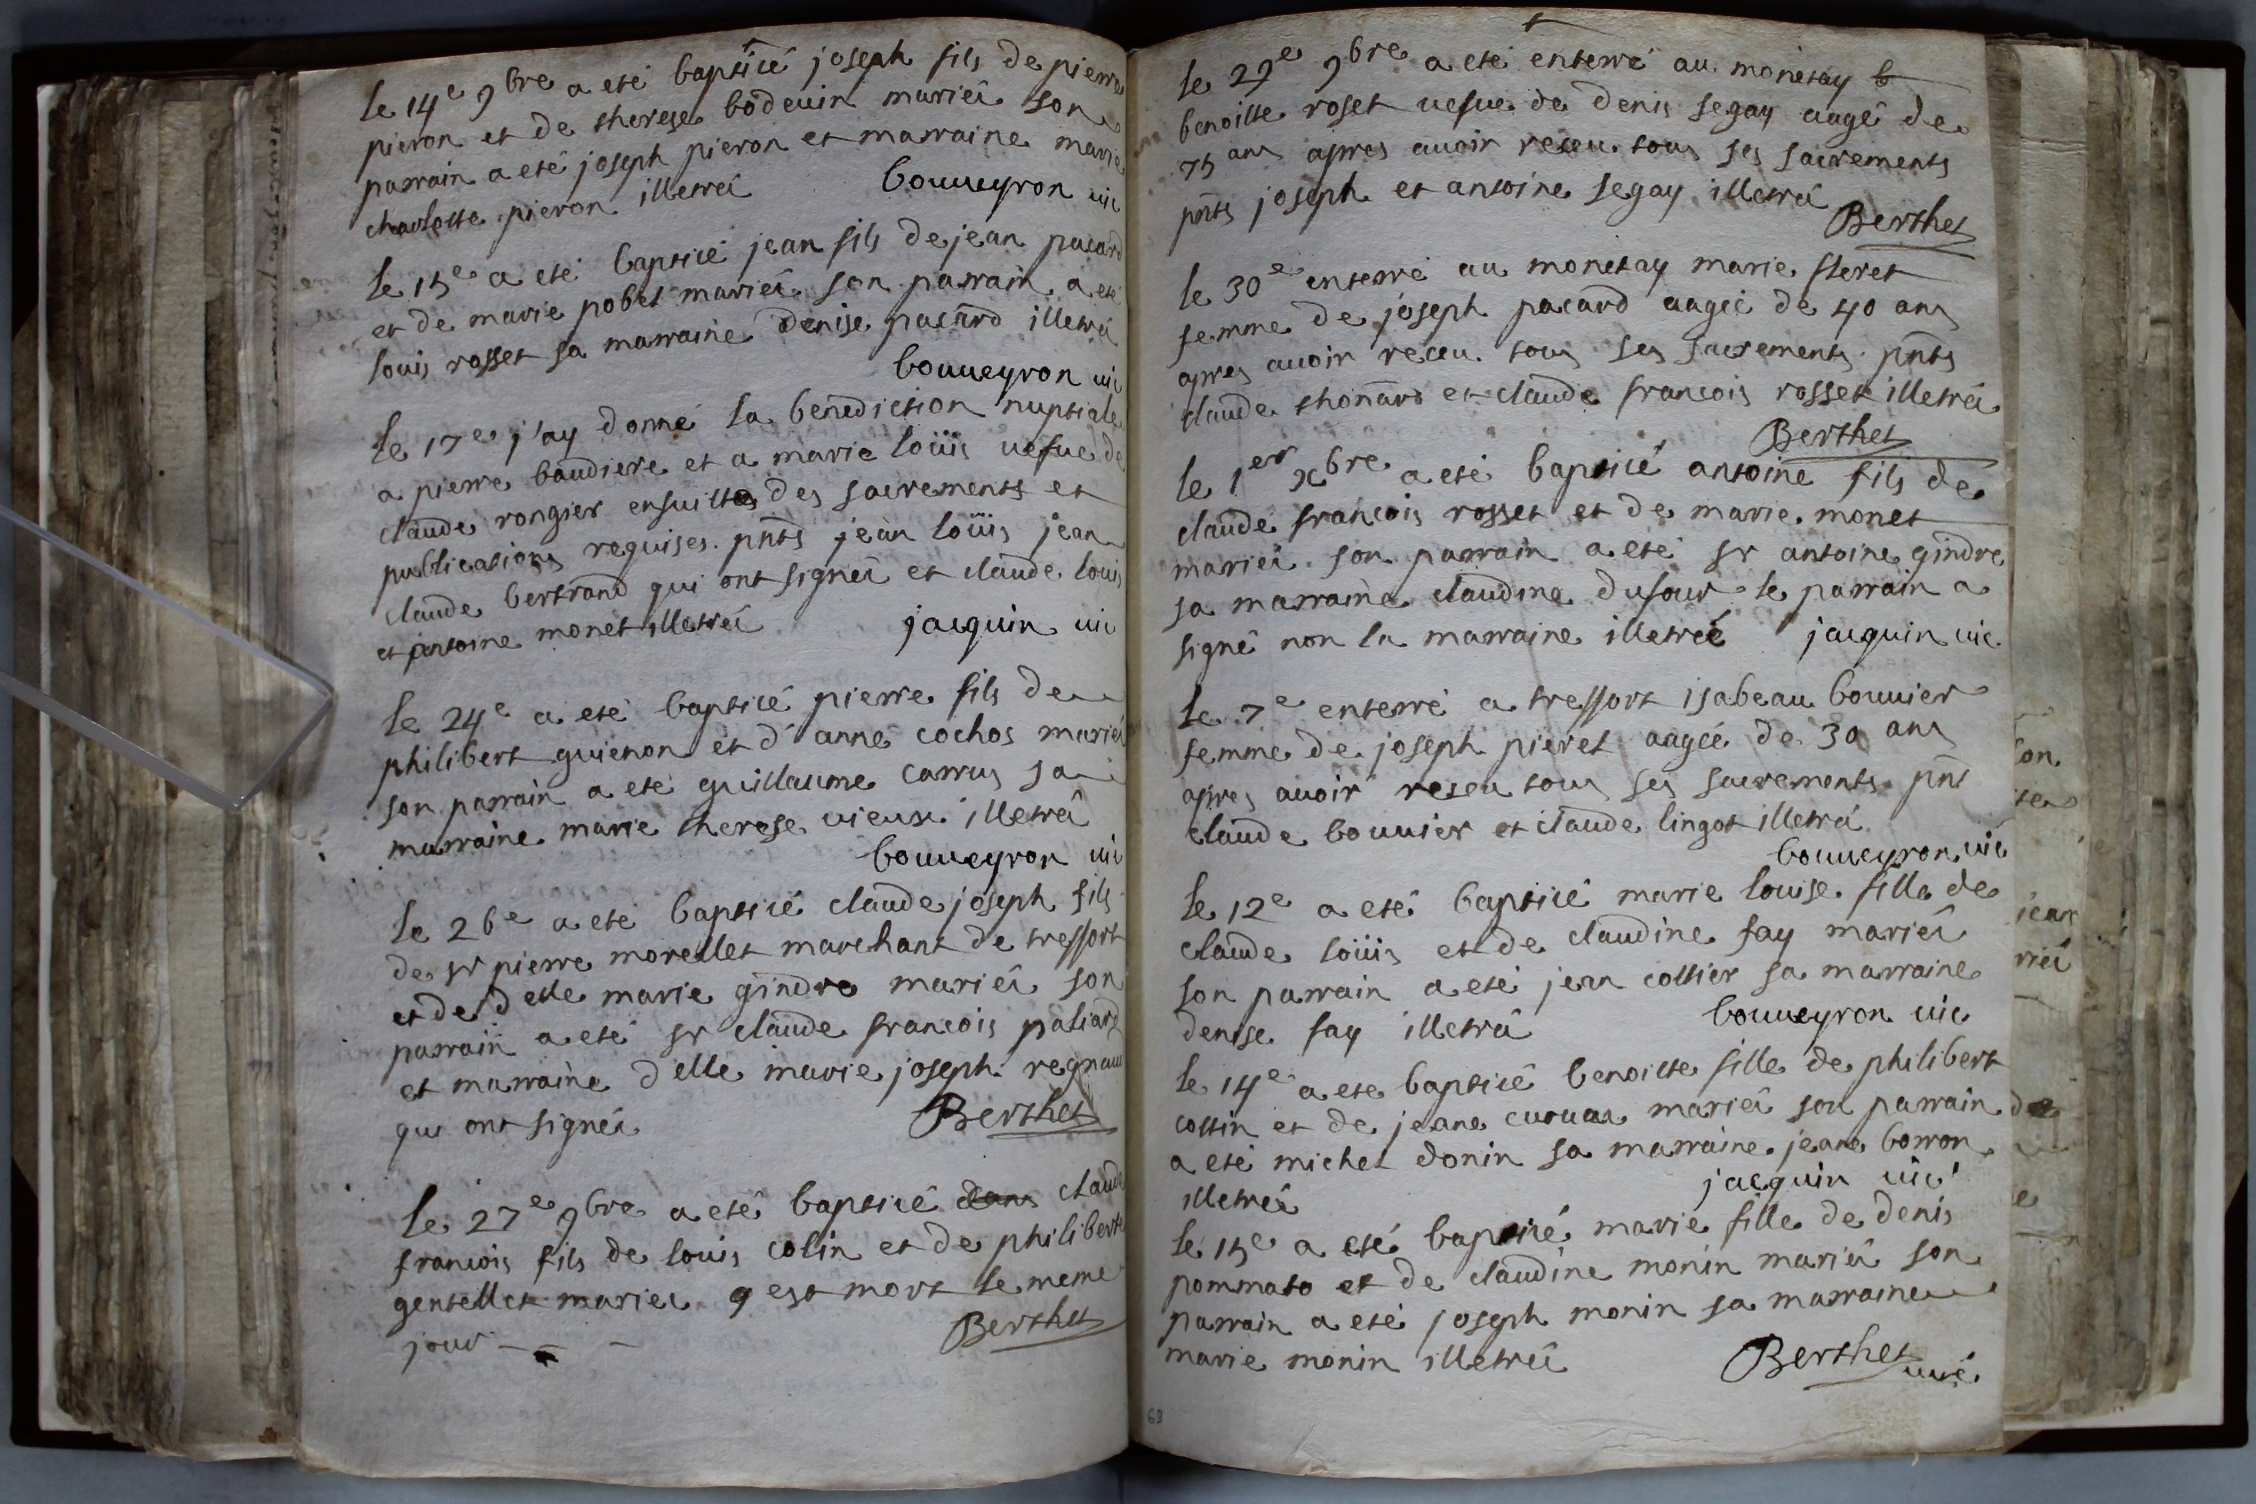 le 14e 9bre a eté baptisé joseph fils de pierre
pieron et de therese bodevin mariéš son
parrain a eté joseph pieron et marraine marie
charlotte pieron illetréš bouveyron vic
le 15e a eté baptisé jean fils de jean pacard
et de marie pobel mariéš son parrain a eté
louis rosset sa marraine denise pacard illetréš
bouveyron vic
le 17e j'ay donné la benediction nuptiale
a pierre baudiere et a marie loüis vefue de
claude rongier ensuitte des sacrements et
publications requises pnts jean loüis jean
claude bertrand qui ont signéš et claude louis
et antoine monet illetréš jacquin vic
le 24e a eté baptisé pierre fils de
philibert guienon et d'anne cochos mariéš
son parrain a eté guillaume carrus sa
marraine marie therese vieux illetréš
bouveyron vic
le 26e a eté baptisé claude joseph fils
de sr pierre morellet marchant de tressort
et de delle marie gindre mariéš son
parrain a eté sr claude francois paliard
et marraine d'elle marie joseph regnaud
qui ont signéš Berthet
le 27e 9bre a eté baptisé claude
francois fils de louis colin et de philiberte
gentellet mariéš q est mort le meme
jour Berthet
le 29e 9bre a eté enterré au monetay
benoitte roset vefue de denis segay aagé de
75 ans apres avoir receu tous ses sacrements
pnts joseph et antoine segay illetréš
Berthet
le 30e enterré au monetay marie fleret
femme de joseph pacard aagée de 40 ans
apres avoir receu tous ses sacrements pnts
claude thonard et claude francois rosset illetréš
Berthet
le 1er xbre a eté baptisé antoine fils de
claude francois rosset et de marie monet
mariéš son parrain a eté sr antoine gindre
sa marraine claudine dufour le parrain a
signé non la marraine illetréé jacquin vic
le 7e enterré a tressort isabeau bouvier
femme de joseph pieret aagée de 30 ans
apres avoir receu tous ses sacrements pnt
claude bouvier et claude lingot illetréš
bouveyron vic
le 12e a eté baptisé marie louise fille de
claude loüis et de claudine fay mariéš
son parrain a eté jean cottier sa marraine
denise fay illetréš bouveyron vic
le 14e a ete baptisé benoitte fille de philibert
cottin et de jeane mariéš son parrain
a eté michel donin sa marraine jeane borron
illetréš jacquin vic
le 15e a eté baptisé marie fille de denis
pommato et de claudine monin mariéš son
parrain a eté joseph monin sa marraine
marie monin illetréš Berthet
curé
63